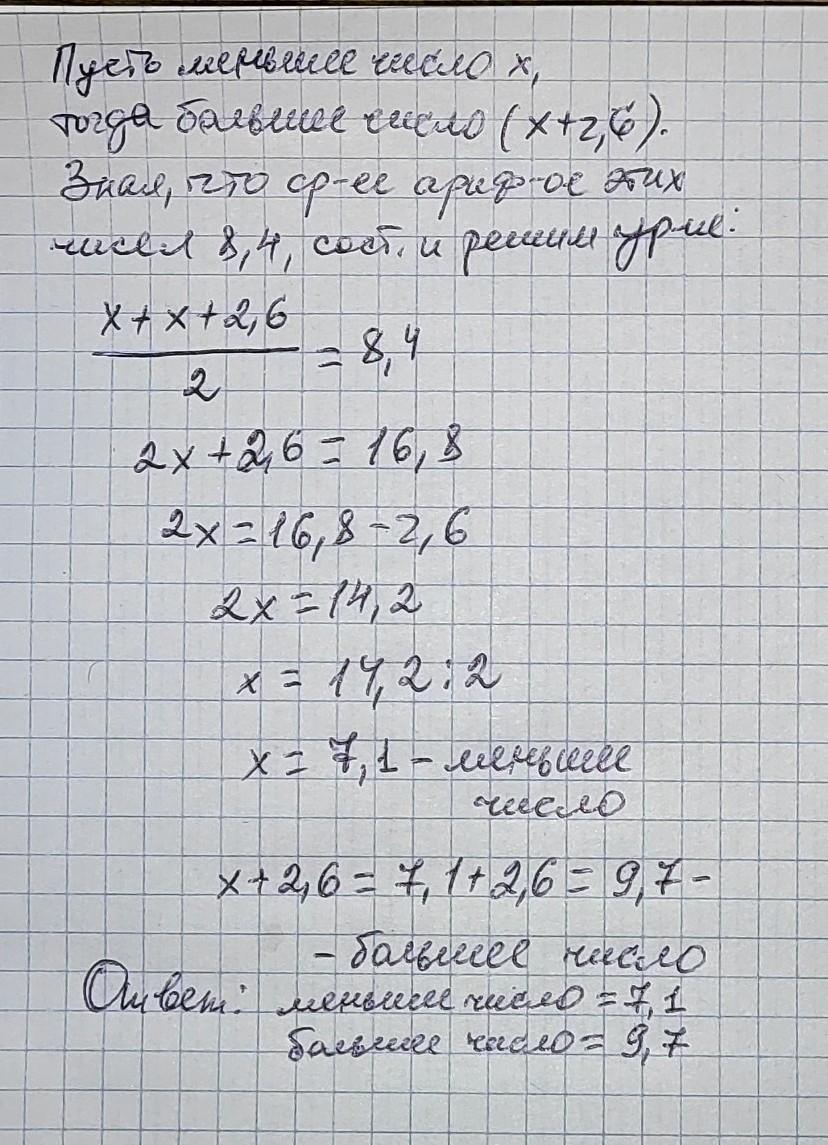 Пусть меньшее число x,
тогда большее число (x+2,6).
Зная, что ср-ее ариф-ое этих
чисел 8,4, сост. и решим ур-ие:
x + x + 2,6
2
= 8,4
2x + 2,6 = 16,8
2x = 16,8 - 2,6
2x = 14,2
x = 14,2 : 2
x = 7,1 - меньшее
число
x + 2,6 = 7,1 + 2,6 = 9,7 -
- большее число
Ответ: меньшее число = 7,1
большее число = 9,7